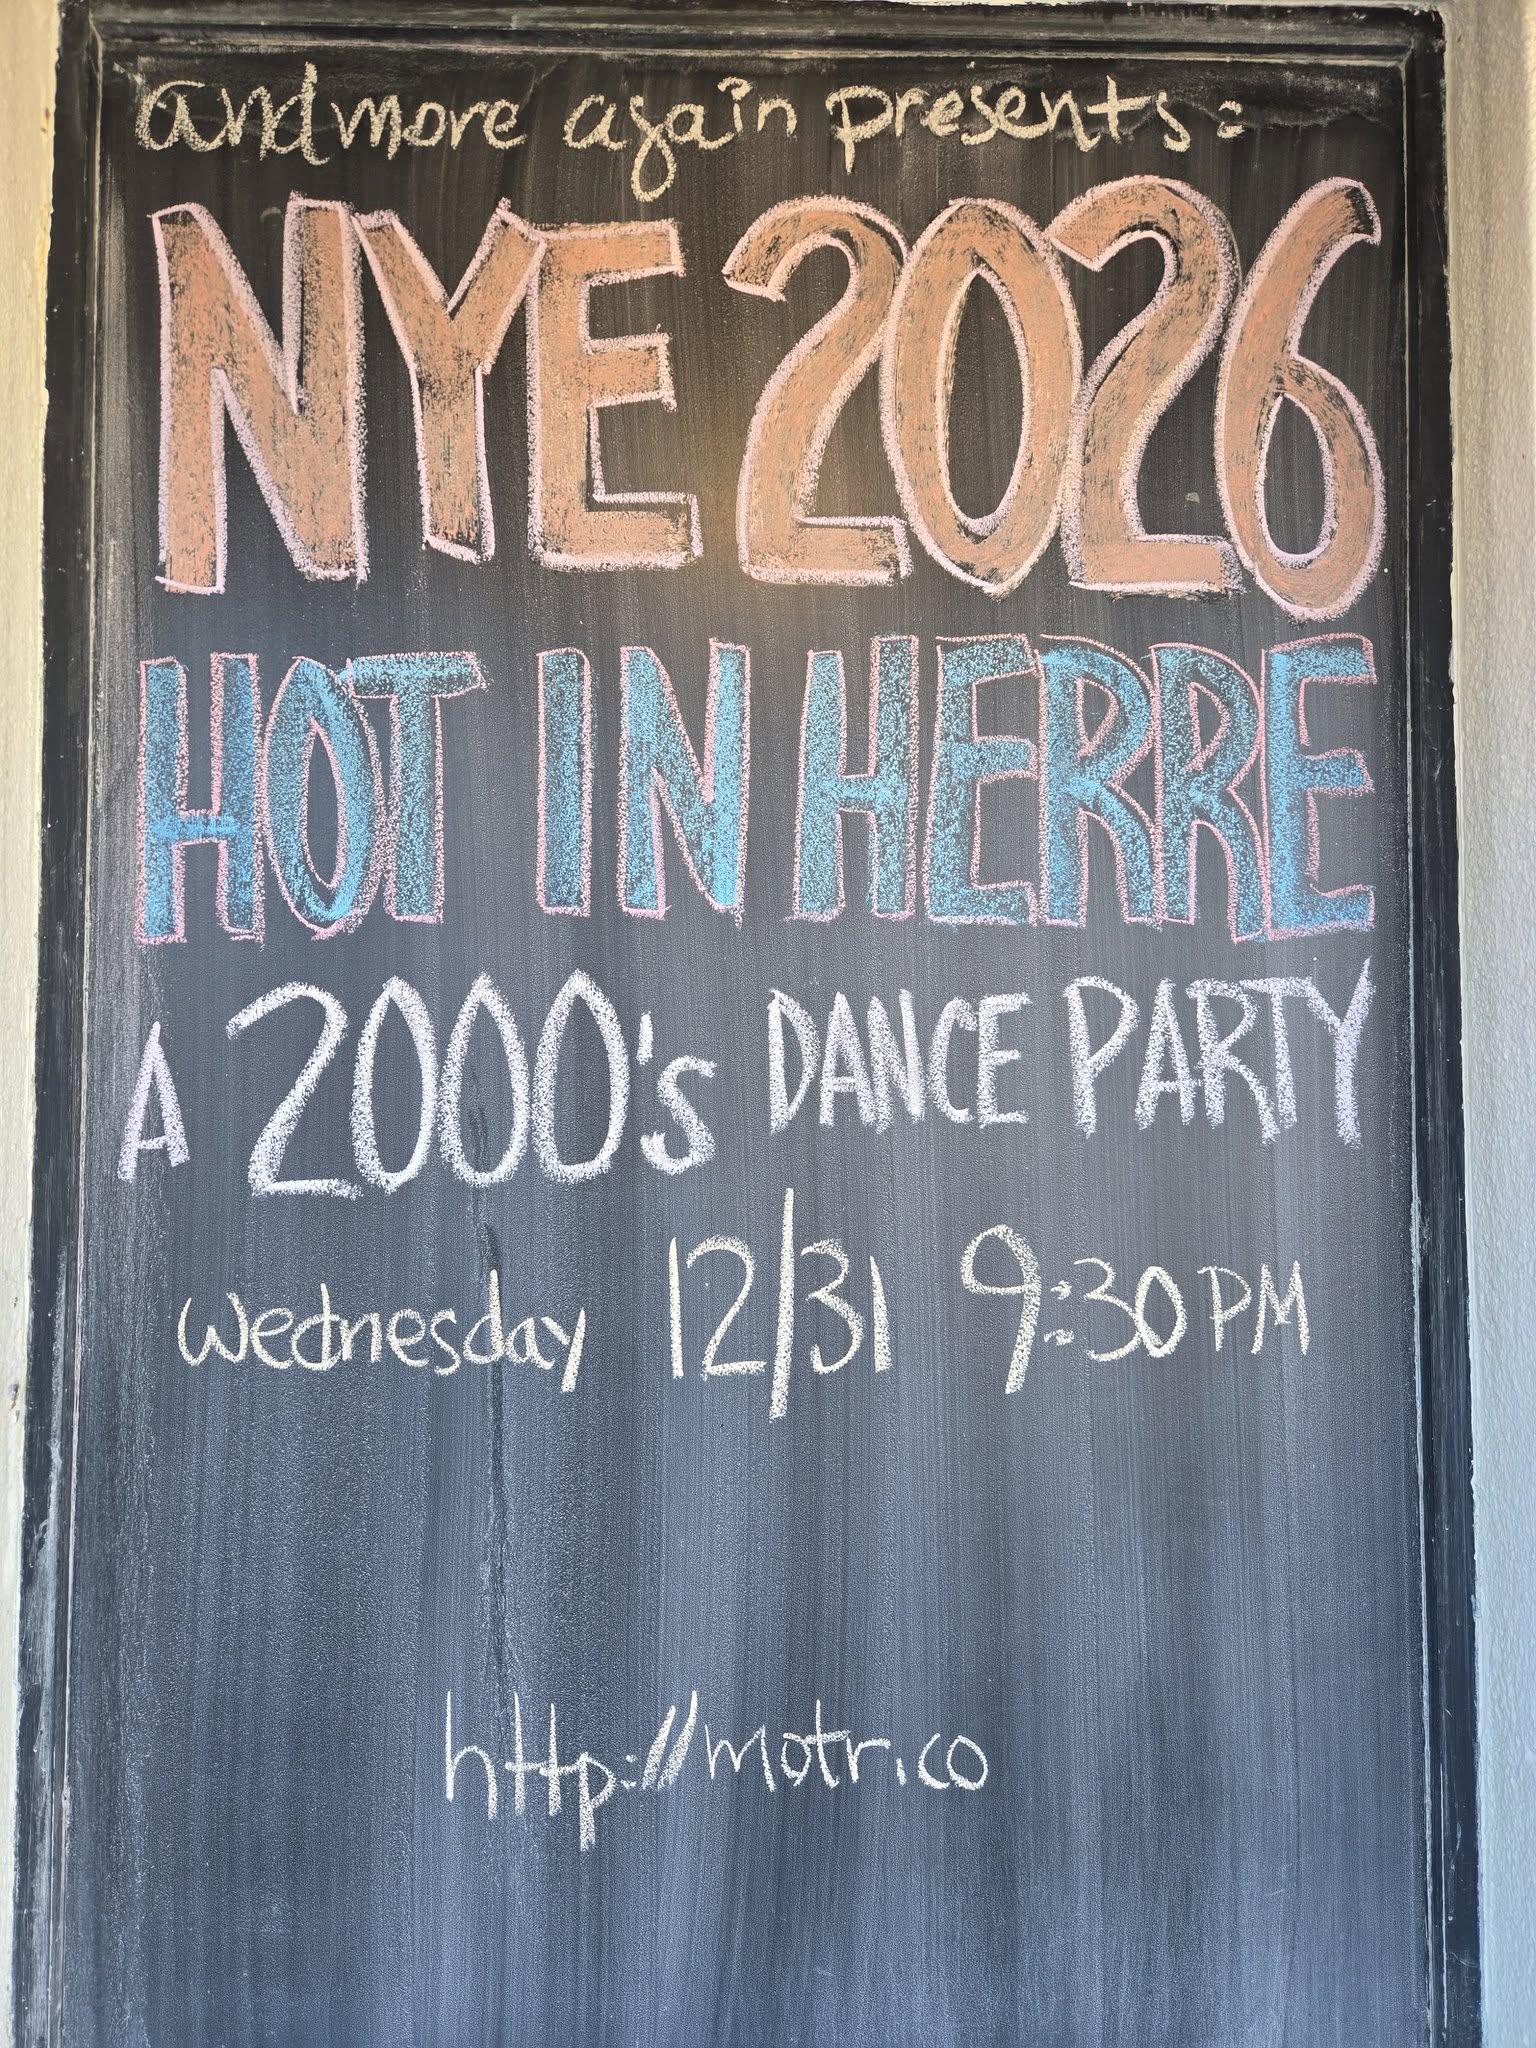 andmore again presents:
NYE 2026
HOT IN HERRE
A 2000's DANCE PARTY
Wednesday 12/31 9:30 PM
http://motr.co